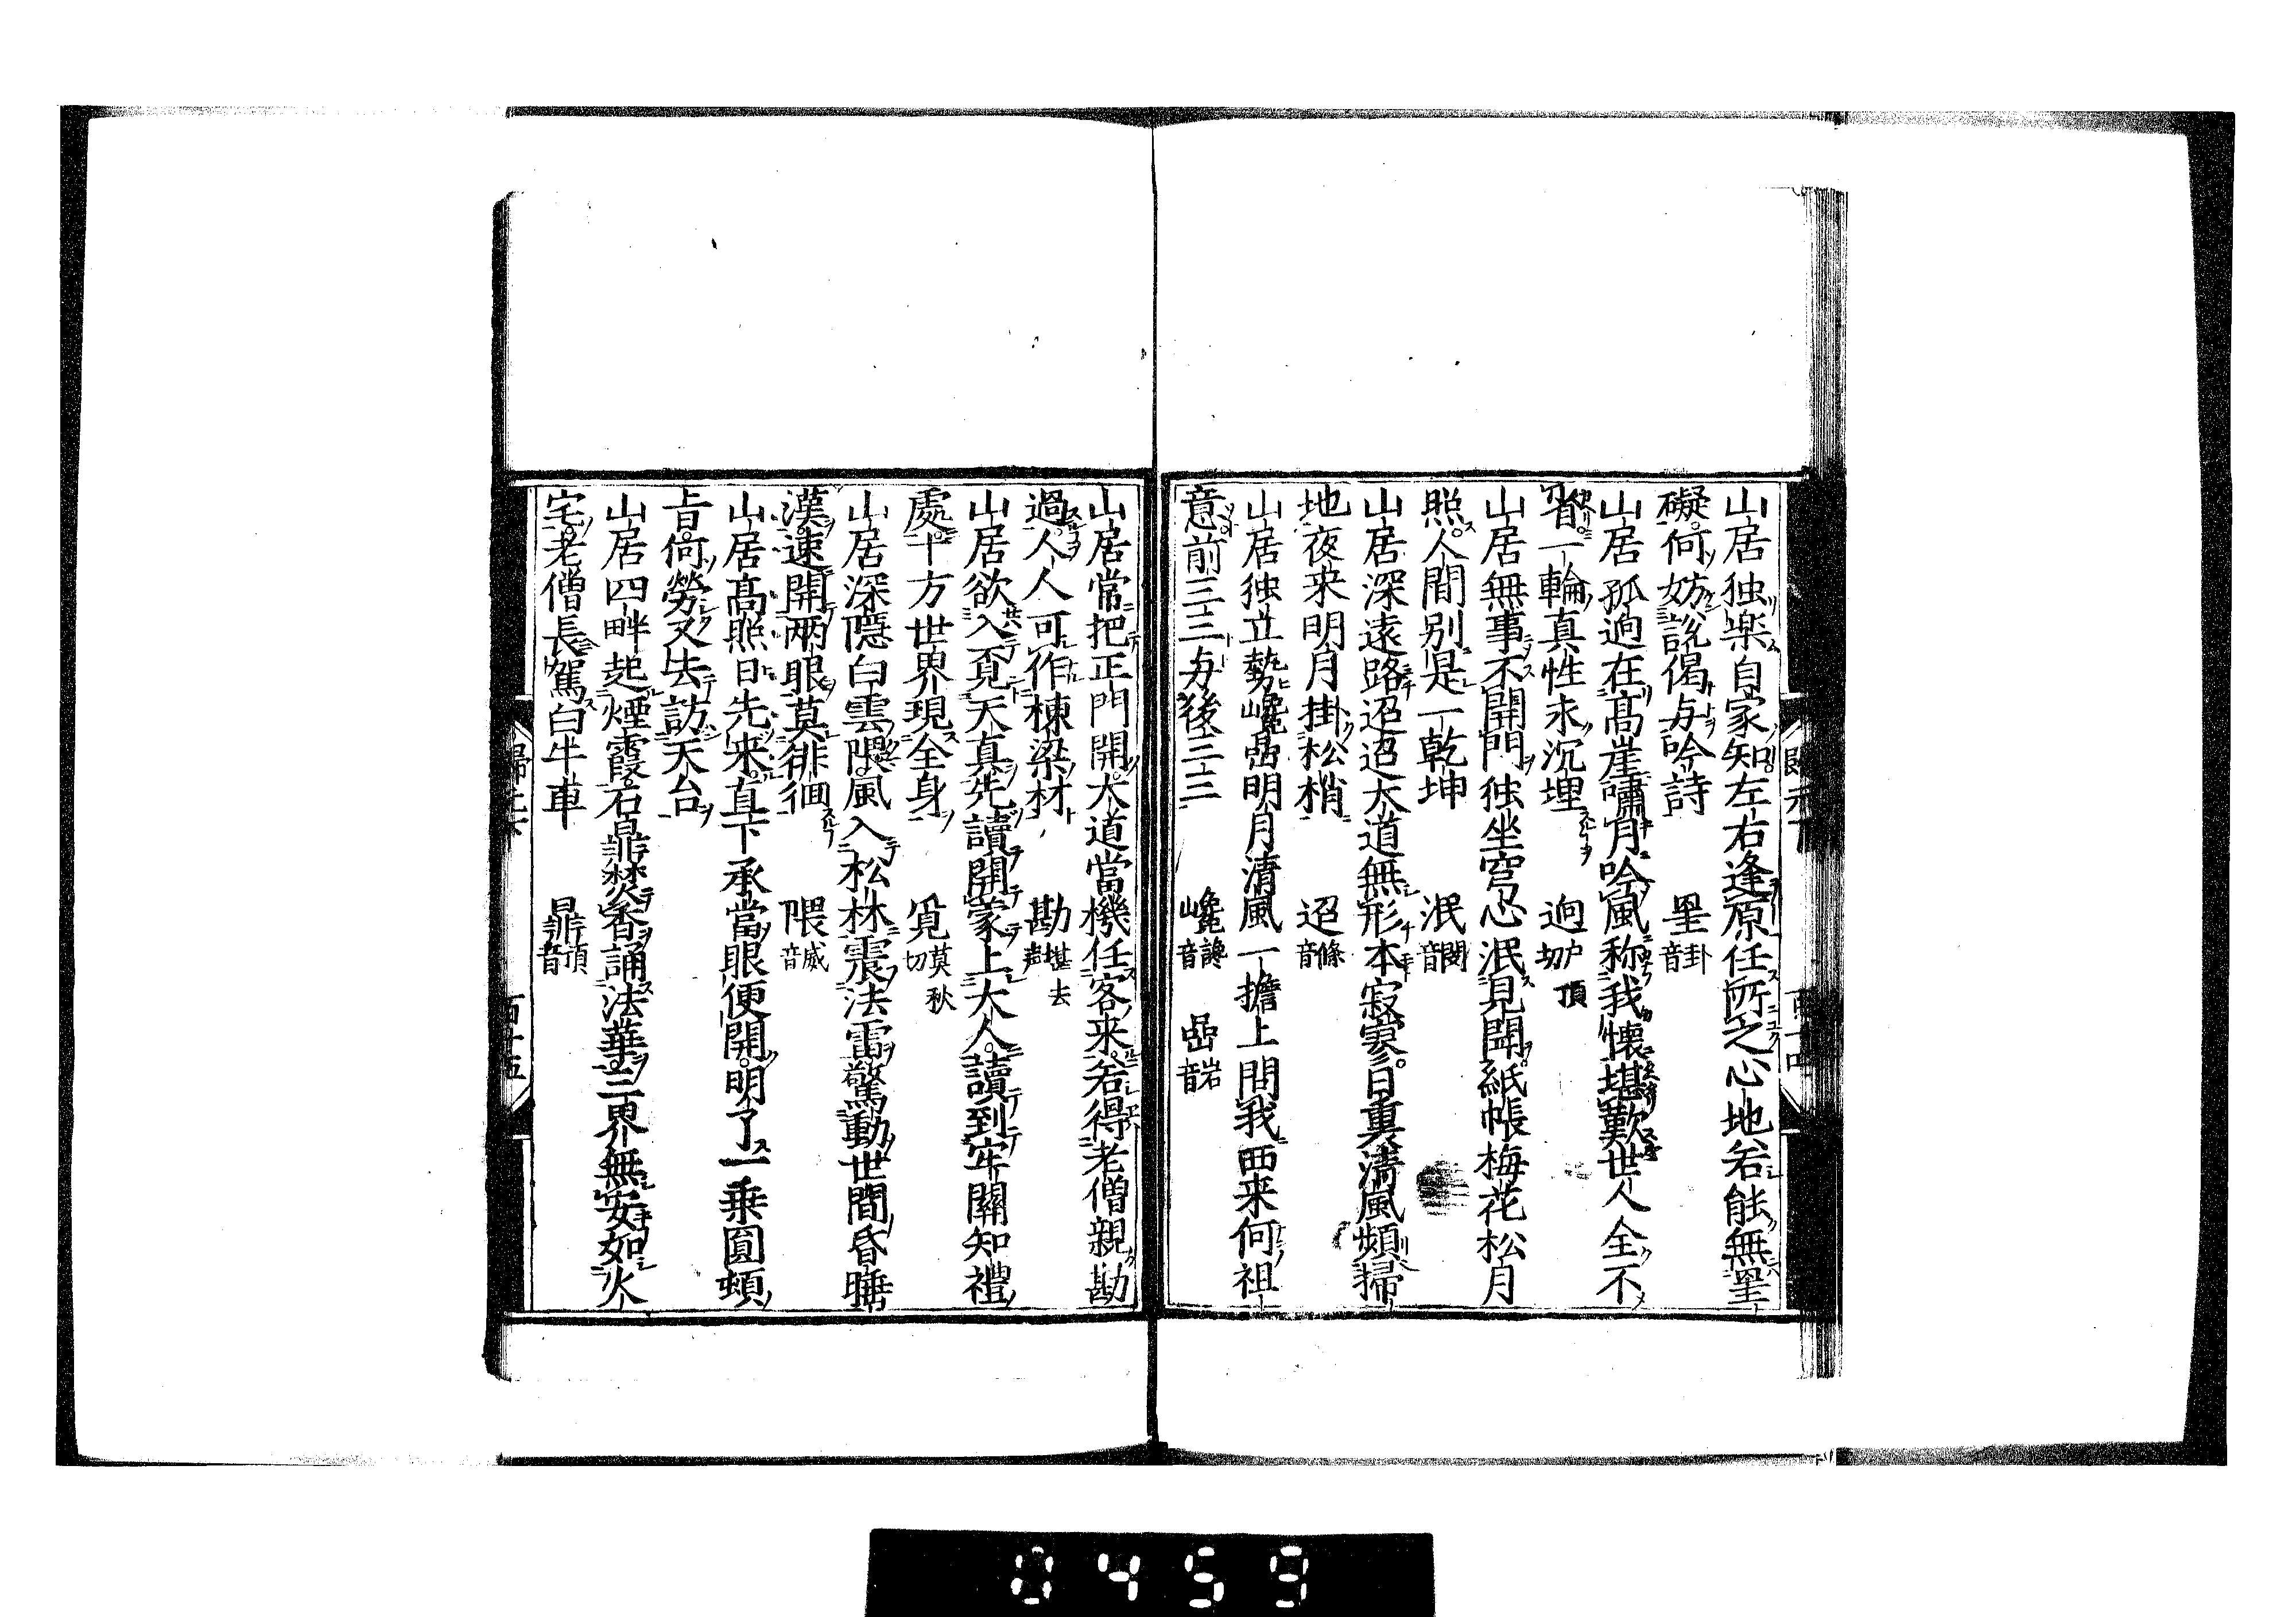 山居独楽自家知左右逢原任所之心地若能無罣
礙何妨説偈与吟詩　罣音卦
山居孤逈在髙崖嘯月吟風称我懐堪歎世人全不
省一輪真性永沉埋　逈戸頂切
山居無事不開門独坐穹心泯見聞紙帳梅花松月
照人間别是一乾坤　泯音閔
山居深遠路迢迢大道無形本寂寥日裏清風頻掃
地夜来明月掛松梢　迢音條
山居独立勢巉嵒明月清風一擔上問我西来何祖
意前三三与後三三　巉音讒　嵒音岩
山居常把正門開大道當機任客来若得老僧親勘
過人人可作棟梁材　勘堪去声
山居欲入覓天真先讀開蒙上大人讀到牢關知禮
處十方世界現全身　覓莫秋切
山居深隠白雲隈風入松林震法雷驚動世間昏睡
漢速開兩眼莫徘徊　隈音威
山居髙照日先来直下承當眼便開明了一乗圓頓
㫖何勞又去訪天台
山居四畔起煙霞石鼎焚香誦法華三界無安如火
宅老僧長駕白牛車　鼎音頂
百十五
0459